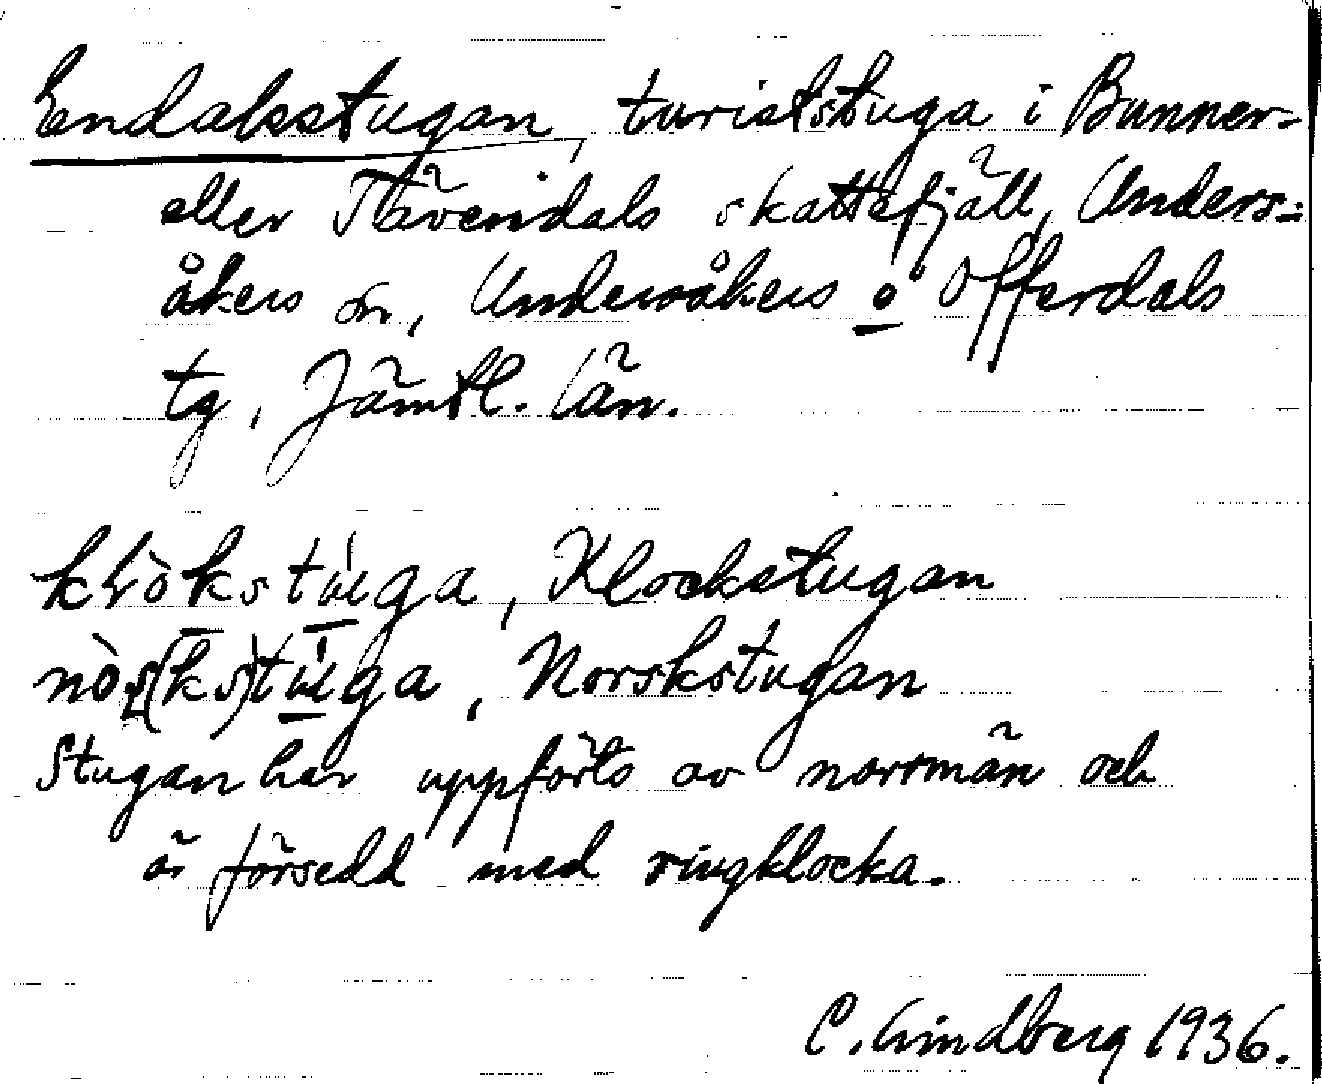 Endalsstugan, turiststuga i Bunner-
eller Tåvendals skattefjäll, Unders-
åkers sn, Undersåkers o Offerdals
tg, Jämtl. län.
Klockstugan
Norskstugan
Stugan har uppförts av norrmän och
är försedd med ringklocka.
C. Lindberg 1936.